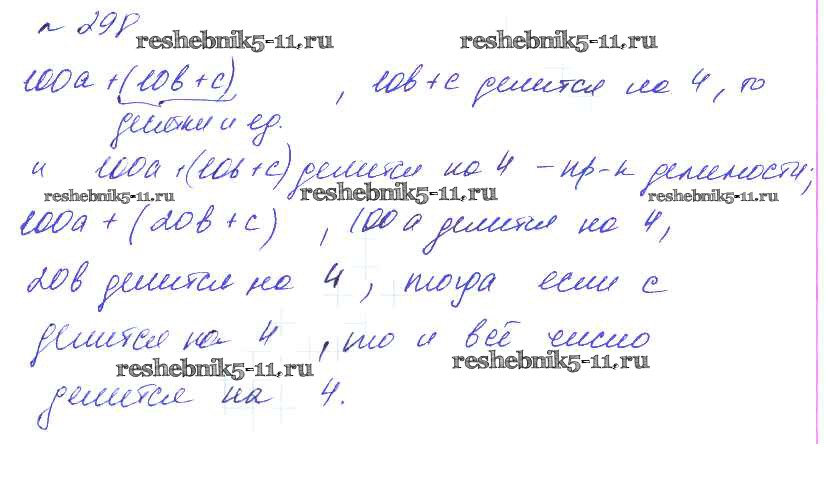 № 298
reshebnik5-11.ru reshebnik5-11.ru
100a + (10b + c), 10b + c делится на 4, то
десятки и ед.
и 100a + (10b + c) делится на 4 – пр-к делимости;
reshebnik5-11.ru reshebnik5-11.ru reshebnik5-11.ru
100a + (20b + c), 100a делится на 4,
20b делится на 4, тогда если c
делится на 4, то и всё число
reshebnik5-11.ru reshebnik5-11.ru
делится на 4.